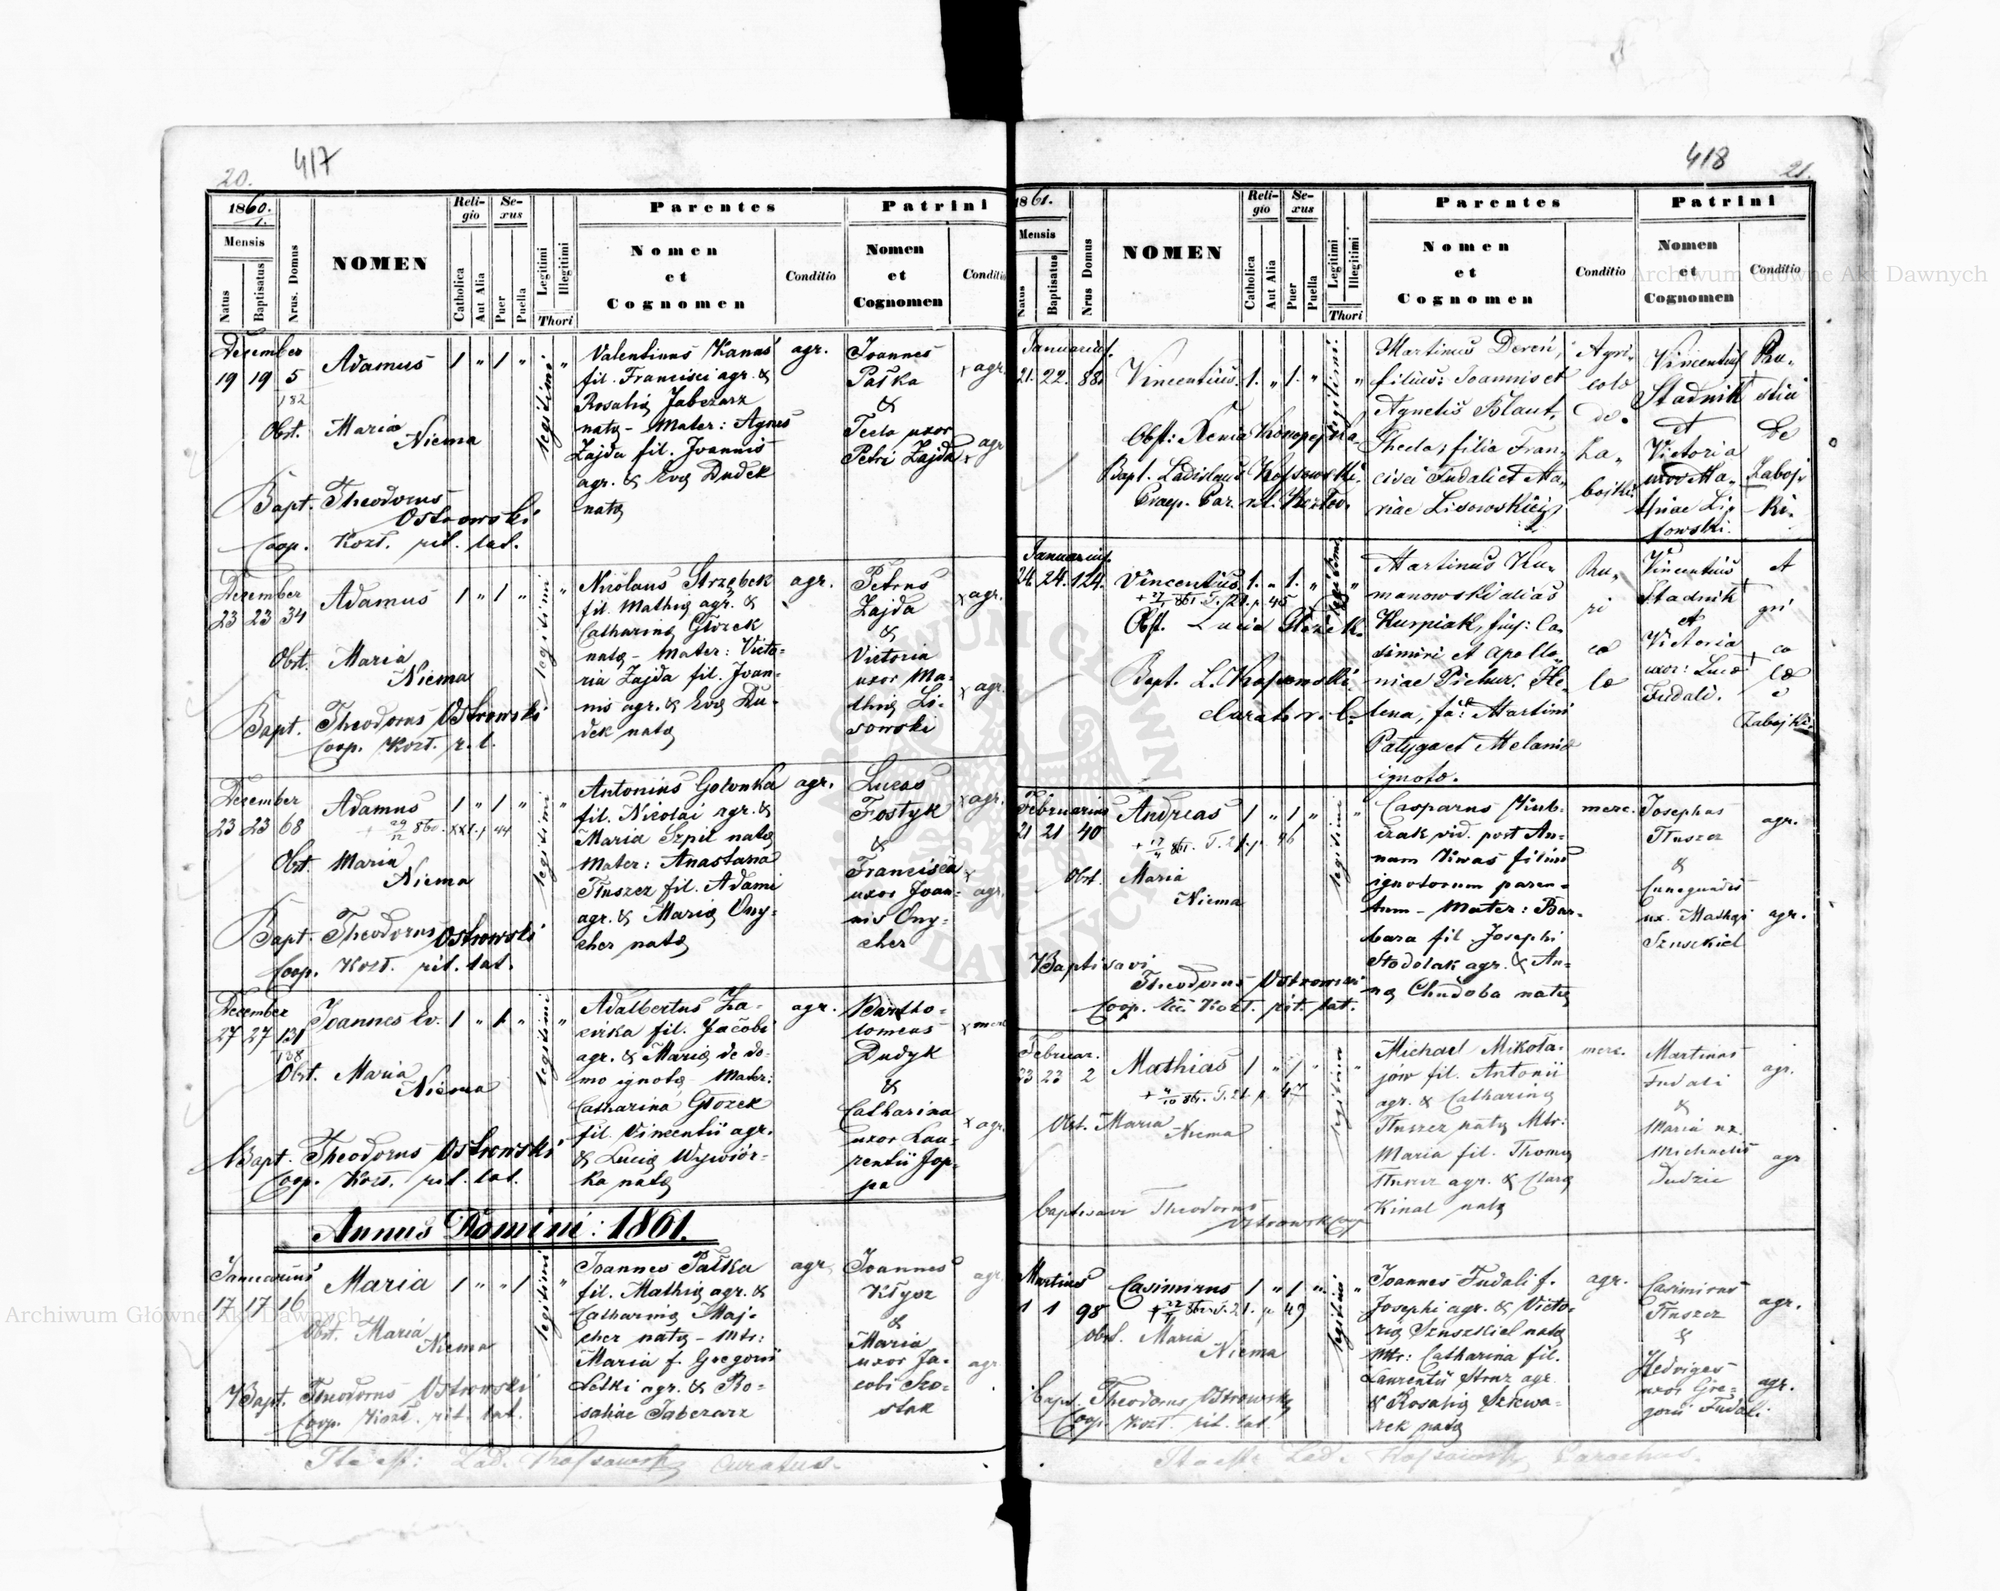 20.
417
1860.
Mensis
Natus
Baptisatus
Nrus. Domus
NOMEN
Religio
Catholica
Aut Alia
Sexus
Puer
Puella
Legitimi
Illegitimi
Thori
Parentes
Nomen
et
Cognomen
Conditio
Patrini
Nomen
et
Cognomen
Conditio
December
19 19 5
182
Adamus 1 " 1 "
Obst. Maria
Niema
Bapt. Theodorus
Ostrowski
Coop. Kozł. rit. lat.
legitimi "
Valentinus Kanas
fil. Francisci agr. &
Rosalią Jabczarz
natą - Mater: Agnes
Zajda fil. Joannis
agr. & Evą Dudek
natą
agr.
Joannes
Pałka
&
Tecla uxor
Petri Zajda
x agr.
x agr
December
23 23 34
Adamus 1 " 1 "
Obst. Maria
Niema
Bapt. Theodorus Ostrowski
Coop. Kozł. r. l.
legitimi "
Nicolaus Strzębek
fil. Mathią agr. &
Catharina Głozek
natą - Mater: Victo-
ria Zajda fil. Joan-
nis agr. & Evą Du-
dek natą
agr.
Petrus
Zajda
&
Victoria
uxor Ma-
thią Li-
sowski
x agr.
x agr.
December
23 23 68
Adamus 1 " 1 "
Obst. Maria
Niema
Bapt. Theodorus Ostrowski
Coop. Kozł. rit. lat.
legitimi "
Antonius Gołonka
fil. Nicolai agr. &
Maria Szpil natą
Mater: Anastasia
Tłuszcz fil. Adami
agr. & Marią Ony-
cher natą
agr.
Lucas
Fostyk
&
Francisca
uxor Joan-
nis Ony-
cher
x agr.
x agr.
December
27 27 131
138
Joannes Ev. 1 " 1 "
Obst. Maria
Niema
Bapt. Theodorus Ostrowski
Coop. Kozł. rit. lat.
legitimi "
Adalbertus Za-
fil. Jacobi
agr. & Marią de do-
mo ignotą - Mater:
Catharina Głozek
fil. Vincentii agr.
& Lucią Wywiór-
ka natą
agr.
Bartho-
lomeus
Dudyk
&
Catharina
uxor Lau-
rentii Jop-
pa
x merc
x agr.
Annus Domini: 1861.
Januarius
17 17 16
Maria 1 " " 1
Obst. Maria
Niema
Bapt. Theodorus Ostrowski
Coop. Kozł. rit. lat.
legitimi "
Joannes Pałka
fil. Mathią agr. &
Catharinią Maj-
cher natą - Mtr:
Maria f. Gregorii
Letki agr. & Ro-
saliae Jabczarz
agr.
Joannes
Kłysz
&
Maria
uxor Ja-
cobi Szo-
stak
agr.
agr.
Lad. Kossowski Curatus.
418
21.
1861.
Mensis
Natus
Baptisatus
Nrus Domus
NOMEN
Religio
Catholica
Aut Alia
Sexus
Puer
Puella
Legitimi
Illegitimi
Thori
Parentes
Nomen
et
Cognomen
Conditio
Patrini
Nomen
et
Cognomen
Conditio
Januarius.
21. 22. 88.
Vincentius. 1. " 1. "
Obst: Xenia
Bapt. Ladislaus Kossowski.
legitimi. "
Martinus Dereń,
filius: Joannis et
Agnetis Blaut,
Thecla, filia Fran-
cisci Fudali et Ma-
riae Lisowskich
Agri-
colae
de
Za-
bojki
Vincentius
Stadnik
et
Victoria
uxor Ma-
thiae Li-
sowski.
Ru-
stici
de
Zaboj-
ki.
Januarius.
24. 24. 124.
Vincentius. 1. " 1. "
Obst. Lucia Głozek.
Bapt. L. Kossowski.
Curatus r. l.
legitimi "
Martinus Ku-
manowski alias
Kurpiak, fil: Ca-
simiri et Apollo-
niae Pichur. He-
lena, Martini
Patyga et Melania
ignota.
Ru-
ri
co
lae
Vincentius
Stadnik
et
Victoria
uxor: Lucae
Fudali.
A
gri
co
lae
Zabojki.
Februarius
21 21 40
Andreas 1 " 1 "
Obst. Maria
Niema
Baptisavi
Theodorus Ostrowski
Coop. Kozł. rit. lat.
legitimi "
Casparus Kub-
czak vid. post An-
nam Kwas filius
ignotorum paren-
tum - Mater: Bar-
bara fil. Josephi
Stodolak agr. & An-
ną Chudoba natą
merc.
Josephus
Tłuszcz
&
Cunegundis
ux. Mathąi
Szuszkiel
agr.
agr.
Februar.
23 23 2
Mathias 1 " 1 "
Obst. Maria
Niema
baptisavi Theodorus
Ostrowski Coop
legitimi "
Michael Mikoła-
jów fil. Antonii
agr. & Catharinią
Tłuszcz natą Mtr:
Maria fil. Thomą
Tłuszcz agr. & Clarą
Kinal natą
merc.
Martinus
Fudali
&
Maria ux.
Michaelis
Dudzic
agr.
agr
Martius
1 1 98
Casimirus 1 " 1 "
Obst. Maria
Niema
Bapt. Theodorus Ostrowski
Coop. Kozł. rit. lat.
legitimi "
Joannes Fudali f.
Josephi agr. & Victo-
rią Szuszkiel natą
Mtr: Catharina fil.
Laurentii Struz agr.
& Rosalią Szkwa-
rek natą
agr.
Casimirus
Tłuszcz
&
Hedviges
uxor Gre-
gorii Fudali
agr.
agr.
Lad. Kossowski Parochus.
Archiwum Główne Akt Dawnych
Archiwum Główne Akt Dawnych
ARCHIWUM GŁÓWNE AKT DAWNYCH